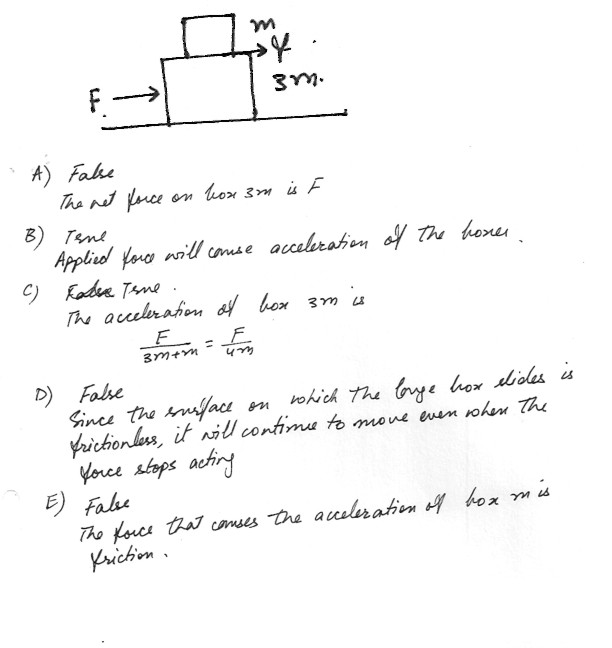 m
f
3m.
F.
A) False
The net force on box 3m is F
B) True
Applied force will cause acceleration of the boxes.
C) False True.
The acceleration of box 3m is
F/3m+m = F/4m
D) False
Since the surface on which the large box slides is
frictionless, it will continue to move even when the
force stops acting
E) False
The force that causes the acceleration of box m is
friction.